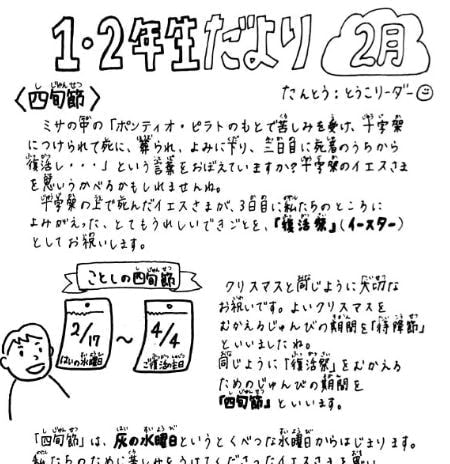 1・2年生だより 2月
〈四旬節〉
たんとう:とうこリーダー
ミサの中の「ポンティオ・ピラトのもとで苦しみを受け、十字架
につけられて死に、葬られ、よみに下り、三日目に死者のうちから
復活し・・・」という言葉をおぼえていますか?十字架のイエスさま
を思いうかべるかもしれませんね。
十字架の上で死んだイエスさまが、3日目に私たちのところに
よみがえった、とてもうれしいできごとを、『復活祭』(イースター)
としてお祝いします。
ことしの四旬節
2/17
はいの水曜日
~
4/4
ご復活の主日
クリスマスと同じように大切な
お祝いです。よいクリスマスを
むかえるじゅんびの期間を「待降節」
といいましたね。
同じように「復活祭」をむかえる
ためのじゅんびの期間を
『四旬節』といいます。
「四旬節」は、灰の水曜日というとくべつな水曜日からはじまります。
私たちのために苦しみをうけてくださったイエスさまを思い